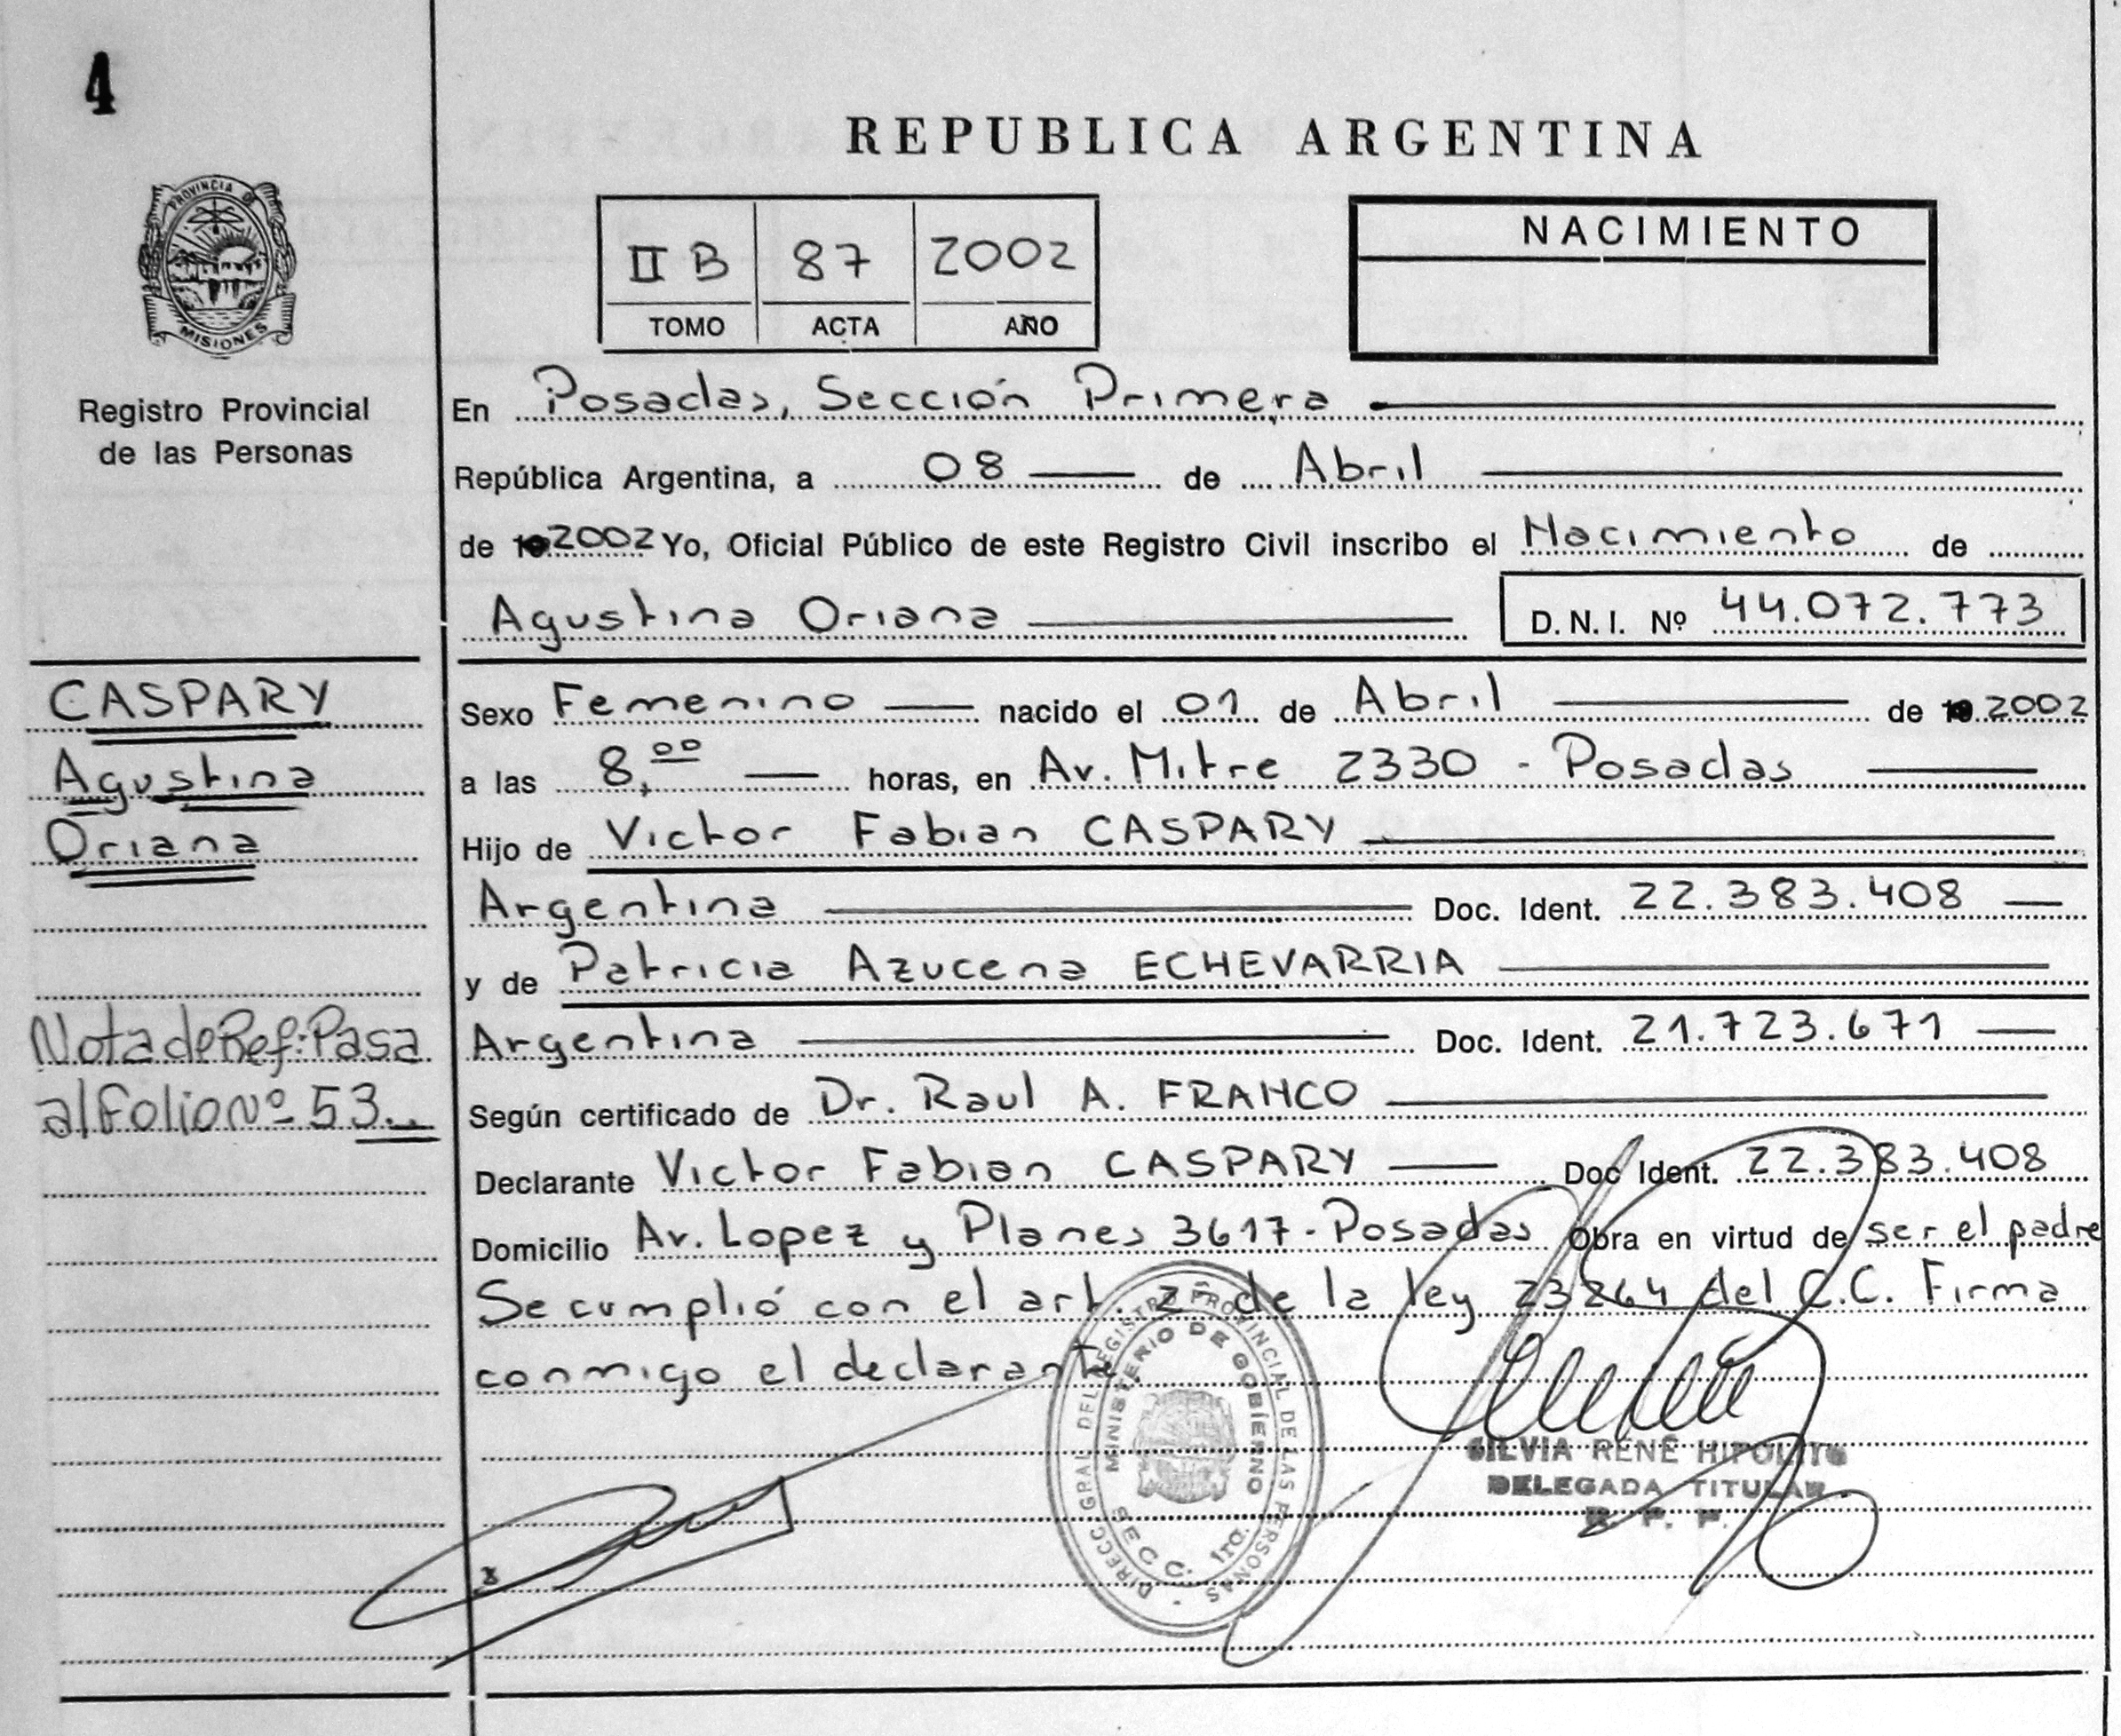 4
REPUBLICA ARGENTINA
PROVINCIA DE
MISIONES
II B 87 2002
TOMO ACTA AÑO
NACIMIENTO
Registro Provincial
de las Personas
En Posadas, Sección Primera
República Argentina, a 08 de Abril
de 2002 Yo, Oficial Público de este Registro Civil inscribo el Nacimiento de
Agustina Oriana D.N.I. Nº 44.072.773
CASPARY
Agustina
Oriana
Sexo Femenino nacido el 01 de Abril de 2002
a las 8,00 horas, en Av. Mitre 2330 - Posadas
Hijo de Victor Fabian CASPARY
Argentina Doc. Ident. 22.383.408
y de Patricia Azucena ECHEVARRIA
Argentina Doc. Ident. 21.723.671
Nota de Ref: Pasa
al folio Nº 53..
Según certificado de Dr. Raul A. FRANCO
Declarante Victor Fabian CASPARY Doc Ident. 22.383.408
Domicilio Av. Lopez y Planes 3617 - Posadas Obra en virtud de ser el padre
Se cumplió con el art. 2 de la ley 23264 del C.C. Firma
conmigo el declarante.
DIRECC GRAL DEL REGISTRO PROVINCIAL DE LAS PERSONAS
MINISTERIO DE GOBIERNO
SECC. 1ra.
SILVIA RENÉ HIPOLITO
DELEGADA TITULAR
R. P. P.